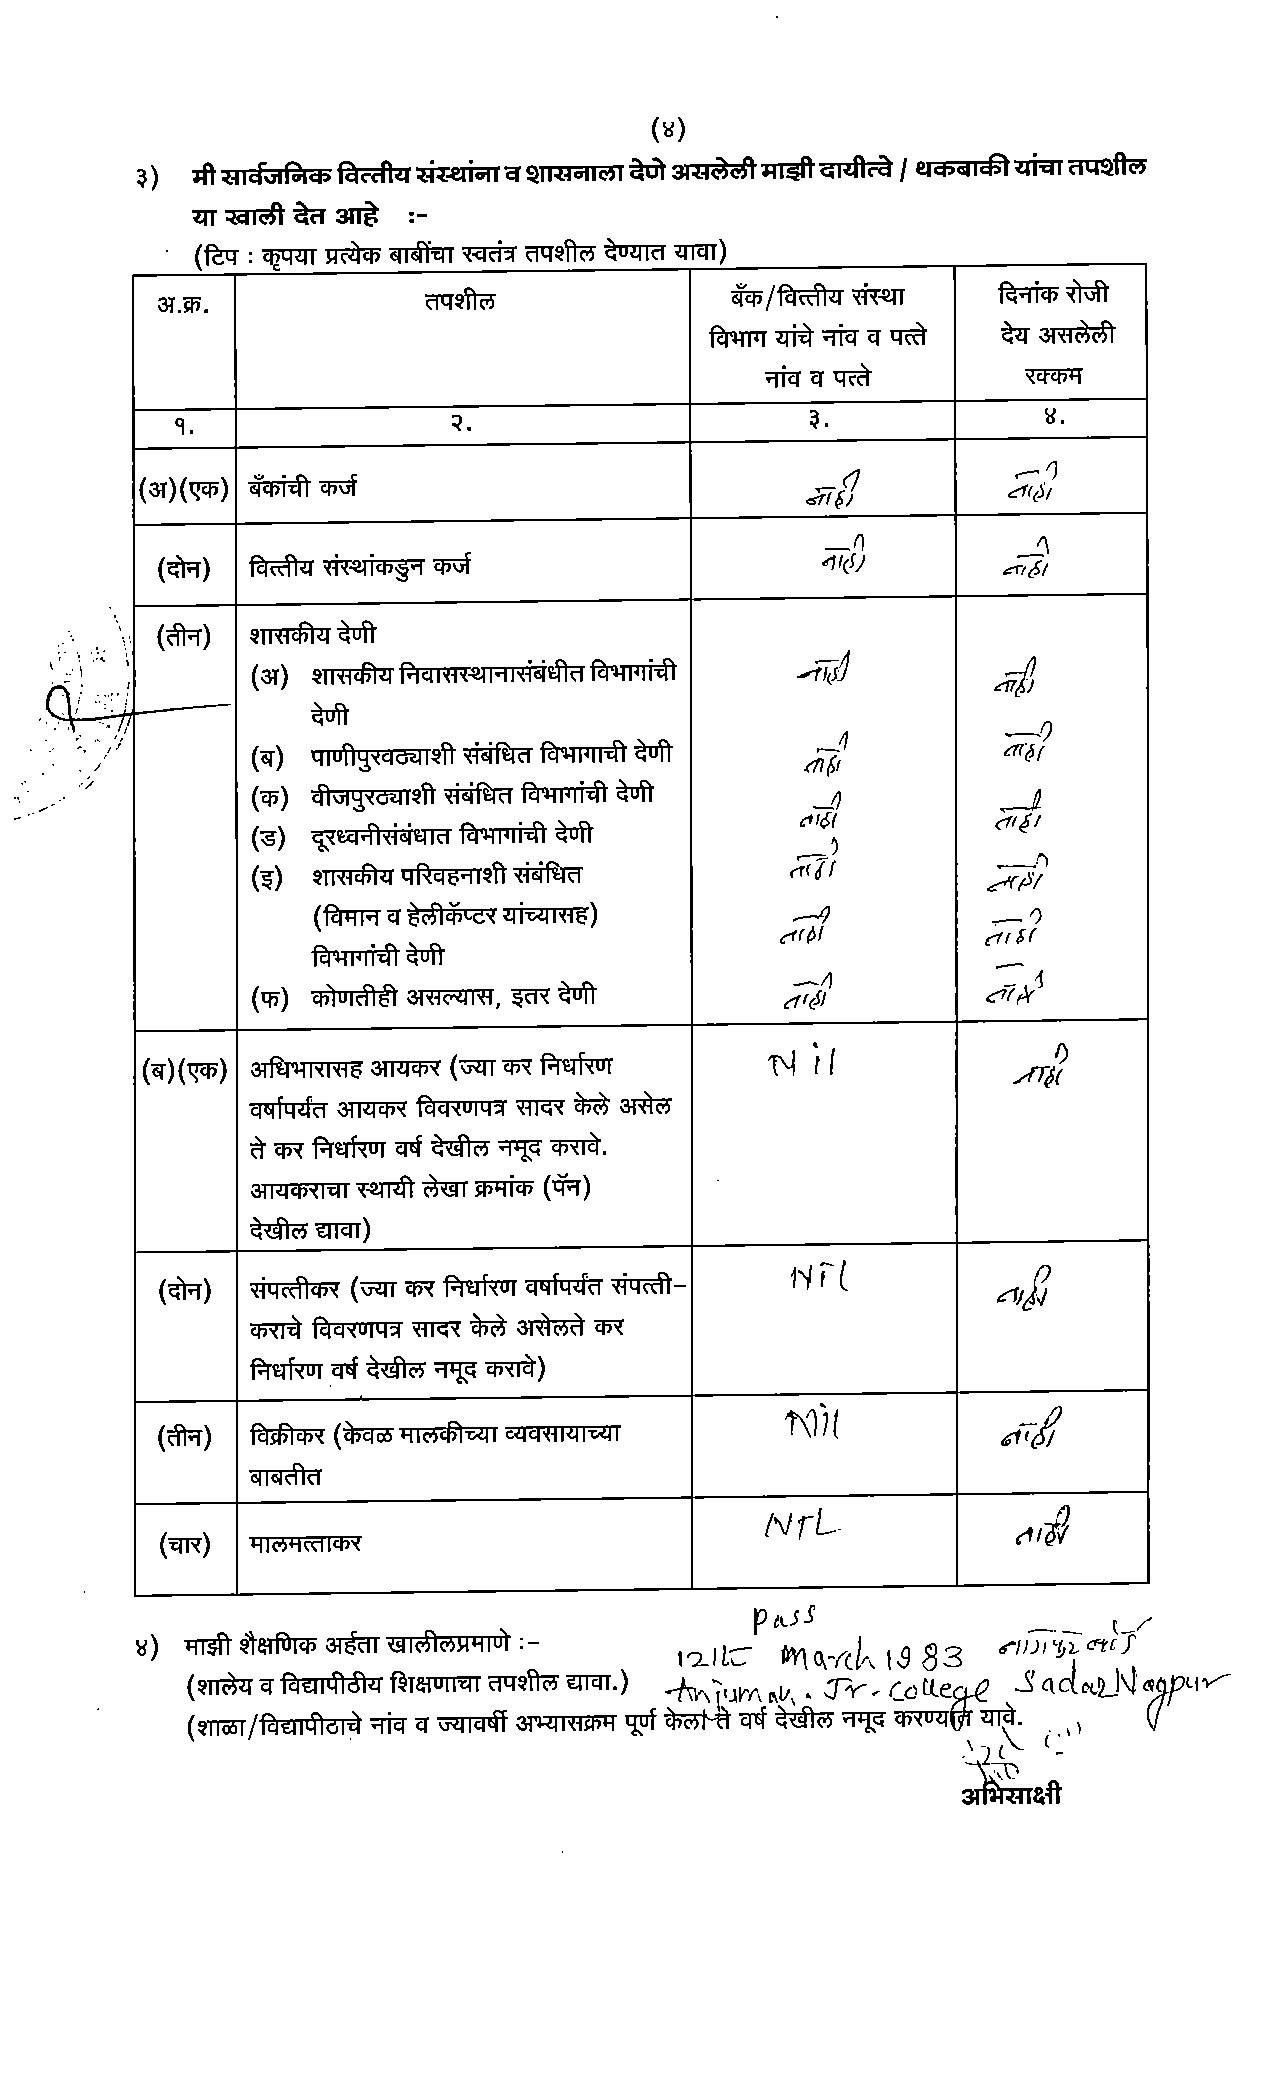 (४)
३) मी सार्वजनिक वित्तीय संस्थांना व शासनाला देणे असलेली माझी दायीत्वे / थकबाकी यांचा तपशील
या खाली देत आहे :-
(टिप : कृपया प्रत्येक बाबींचा स्वतंत्र तपशील देण्यात यावा)
अ.क्र. तपशील बँक/वित्तीय संस्था दिनांक रोजी
विभाग यांचे नांव व पत्ते देय असलेली
नांव व पत्ते रक्कम
१. २. ३. ४.
(अ)(एक) बँकांची कर्ज नाही नाही
(दोन) वित्तीय संस्थांकडुन कर्ज नाही नाही
(तीन) शासकीय देणी
(अ) शासकीय निवासस्थानासंबंधीत विभागांची नाही नाही
देणी
(ब) पाणीपुरवठ्याशी संबंधित विभागाची देणी नाही नाही
(क) वीजपुरठ्याशी संबंधित विभागांची देणी नाही नाही
(ड) दूरध्वनीसंबंधात विभागांची देणी
(इ) शासकीय परिवहनाशी संबंधित नाही नाही
(विमान व हेलीकॅप्टर यांच्यासह) नाही नाही
विभागांची देणी
(फ) कोणतीही असल्यास, इतर देणी नाही नाही
(ब)(एक) अधिभारासह आयकर (ज्या कर निर्धारण Nil नाही
वर्षापर्यंत आयकर विवरणपत्र सादर केले असेल
ते कर निर्धारण वर्ष देखील नमूद करावे.
आयकराचा स्थायी लेखा क्रमांक (पॅन)
देखील द्यावा)
(दोन) संपत्तीकर (ज्या कर निर्धारण वर्षापर्यंत संपत्ती- NIL नाही
कराचे विवरणपत्र सादर केले असेलते कर
निर्धारण वर्ष देखील नमूद करावे)
(तीन) विक्रीकर (केवळ मालकीच्या व्यवसायाच्या Nil नाही
बाबतीत
(चार) मालमत्ताकर NIL नाही
Pass
४) माझी शैक्षणिक अर्हता खालीलप्रमाणे :- 12th March 1983 नागपुर बोर्ड
(शालेय व विद्यापीठीय शिक्षणाचा तपशील द्यावा.) Anjuman. Jr. College Sadar Nagpur
(शाळा/विद्यापीठाचे नांव व ज्यावर्षी अभ्यासक्रम पूर्ण केला ते वर्ष देखील नमूद करण्यात यावे.
अभिसाक्षी